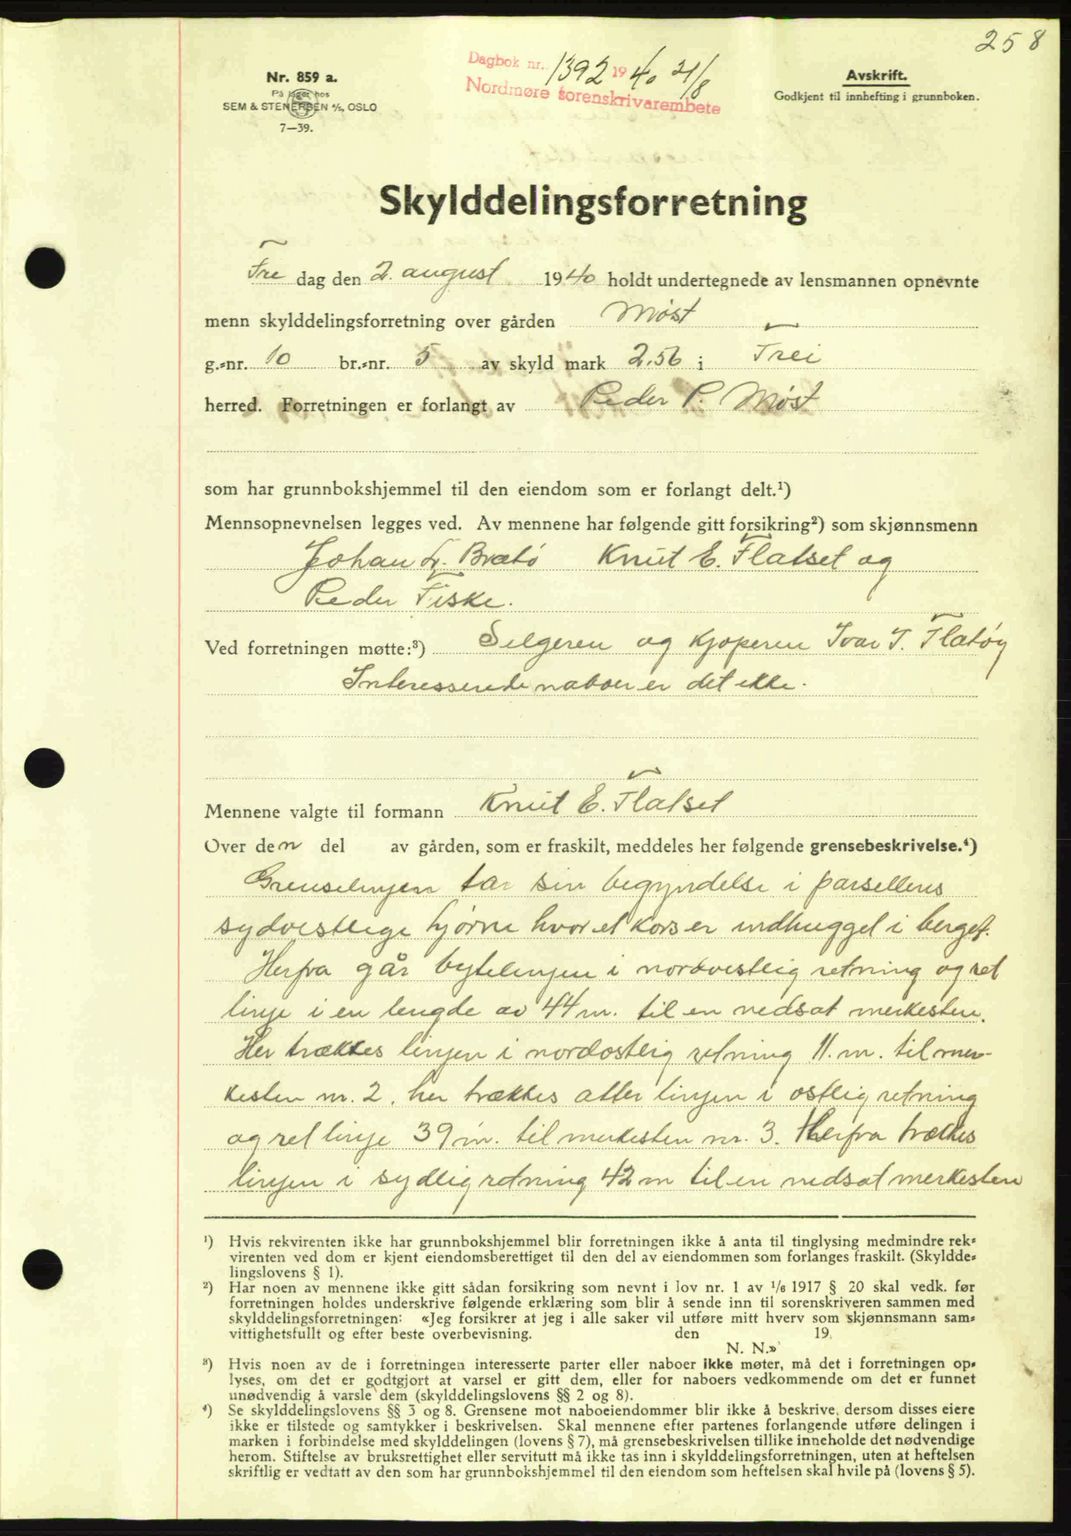 258
Nr. 859 a.
På lager hos
SEM & STENERSEN A/S, OSLO
7—39.
Dagbok nr. 1392 1940 21/8
Nordmøre sorenskrivarembete
Avskrift.
Godkjent til innhefting i grunnboken.
Skylddelingsforretning
Fre dag den 2. august 1940 holdt undertegnede av lensmannen opnevnte
menn skylddelingsforretning over gården Møst
g.-nr. 10 br.-nr. 5 av skyld mark 2.56 i Frei
herred. Forretningen er forlangt av Peder P. Møst
som har grunnbokshjemmel til den eiendom som er forlangt delt.¹)
Mennsopnevnelsen legges ved. Av mennene har følgende gitt forsikring²) som skjønnsmenn
Johan L. Bratø Knut E. Flatset og
Peder Fiske.
Ved forretningen møtte:³) Selgeren og kjøperen Ivar J. Flatøy
Interesserede naboer er det ikke.
Mennene valgte til formann Knut E. Flatset
Over den del av gården, som er fraskilt, meddeles her følgende grensebeskrivelse.⁴)
Grenselinjen tar sin begyndelse i parsellens
sydvestlige hjørne hvor et kors er indhugget i berget.
Herfra går bytelinjen i nordvestlig retning og ret
linje i en lengde av 44 m. til en nedsat merkesten.
Her trækkes linjen i nordostlig retning 11. m. til mer-
kesten nr. 2, her trækkes atter linjen i ostlig retning
og ret linje 39 m. til merkesten nr. 3. Herfra trækkes
linjen i sydlig retning 42 m til en nedsat merkesten
¹) Hvis rekvirenten ikke har grunnbokshjemmel blir forretningen ikke å anta til tinglysing medmindre rek-
virenten ved dom er kjent eiendomsberettiget til den del av eiendommen som forlanges fraskilt. (Skyldde-
lingslovens § 1).
²) Har noen av mennene ikke gitt sådan forsikring som nevnt i lov nr. 1 av 1/6 1917 § 20 skal vedk. før
forretningen holdes underskrive følgende erklæring som blir å sende inn til sorenskriveren sammen med
skylddelingsforretningen: «Jeg forsikrer at jeg i alle saker vil utføre mitt hverv som skjønnsmann sam-
vittighetsfullt og efter beste overbevisning. den 19
N. N.»
³) Hvis noen av de i forretningen interesserte parter eller naboer ikke møter, må det i forretningen op-
lyses, om det er godtgjort at varsel er gitt dem, eller for naboers vedkommende om det er funnet
unødvendig å varsle dem (skylddelingslovens §§ 2 og 8).
⁴) Se skylddelingslovens §§ 3 og 8. Grensene mot naboeiendommer blir ikke å beskrive, dersom disses eiere
ikke er tilstede og samtykker i beskrivelsen. Skal mennene efter partenes forlangende utføre delingen i
marken i forbindelse med skylddelingen (lovens § 7), må grensebeskrivelsen tillike inneholde det nødvendige
herom. Stiftelse av bruksrettighet eller servitutt må ikke tas inn i skylddelingsforretningen, uten at heftelsen
skriftlig er vedtatt av den som har grunnbokshjemmel til den eiendom som heftelsen skal hvile på (lovens § 5).